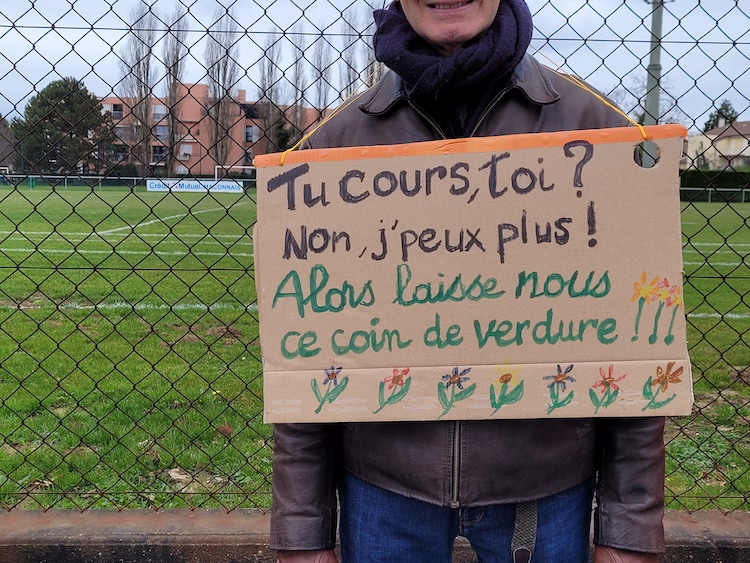 Crédit Mutuel MÂCONNAIS
Tu cours, toi ?
Non, j'peux plus !
Alors laisse nous
ce coin de verdure !!!